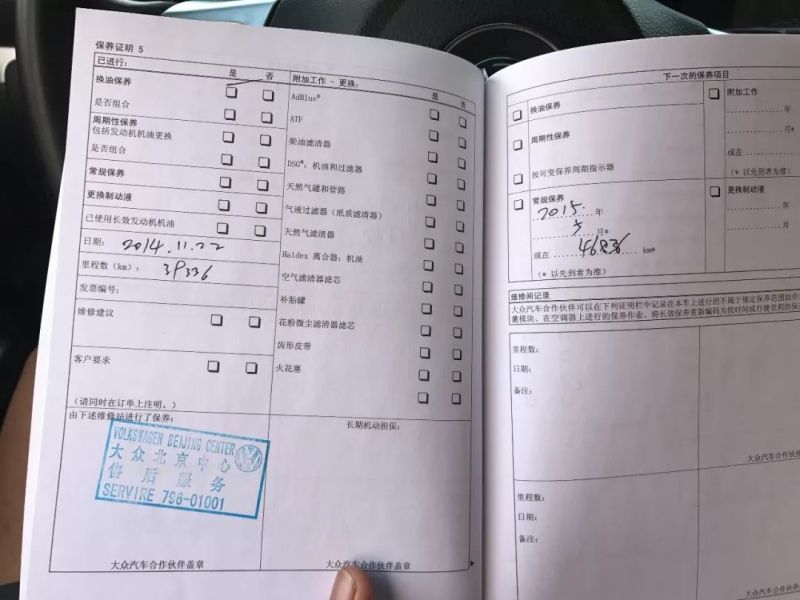 保养证明 5
已进行：
是 否
换油保养
是否组合
周期性保养
包括发动机机油更换
是否组合
常规保养
更换制动液
已使用长效发动机机油
日期： 2014.11.22
里程数（km）： 39336
发票编号：
维修建议
客户要求
（请同时在订单上注明。）
附加工作 - 更换：
是 否
AdBlue®
ATF
柴油滤清器
DSG®：机油和过滤器
天然气罐和管路
气液过滤器（纸质滤清器）
天然气滤清器
Haldex 离合器：机油
空气滤清器滤芯
补胎罐
花粉微尘滤清器滤芯
齿形皮带
火花塞
由下述维修站进行了保养：
VOLKSWAGEN BEIJING CENTER
大众北京中心
售后服务
SERVIRE 796-01001
大众汽车合作伙伴盖章
长期机动担保：
大众汽车合作伙伴盖章
下一次的保养项目
换油保养
周期性保养
按可变保养周期指示器
常规保养
2015 年
5 月*
或在 km*
（* 以先到者为准）
附加工作
年
月*
或在
（* 以先到者为准）
更换制动液
年
月*
或在
维修间记录
大众汽车合作伙伴可以在下列证明栏中记录在本车上进行的不属于规定保养范围的作
量模块、在空调器上进行的保养作业、将长效保养重新编码为按时间或行驶里程的保
里程数：
日期：
备注：
大众汽车合作伙
里程数：
日期：
备注：
大众汽车合作伙